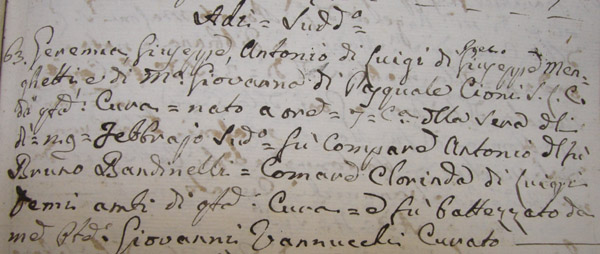 Adi = Sudd.o
63. Geremia, Giuseppe, Antonio di Luigi di Giuseppe Men-
ghetti e di Ma. Giovanna di Pasquale Cioni S. C.
da qsta: Cura = nato a ore = 7 = Ca. della sera del
di = 19 = Febbrajo Sud.o = fù Compare Antonio del fù
Bruno Bandinelli = Comare Clorinda di Luigi
Temi ambi di qsta: Cura = e fù battezzato da
me Giovanni Vannucchi Curato